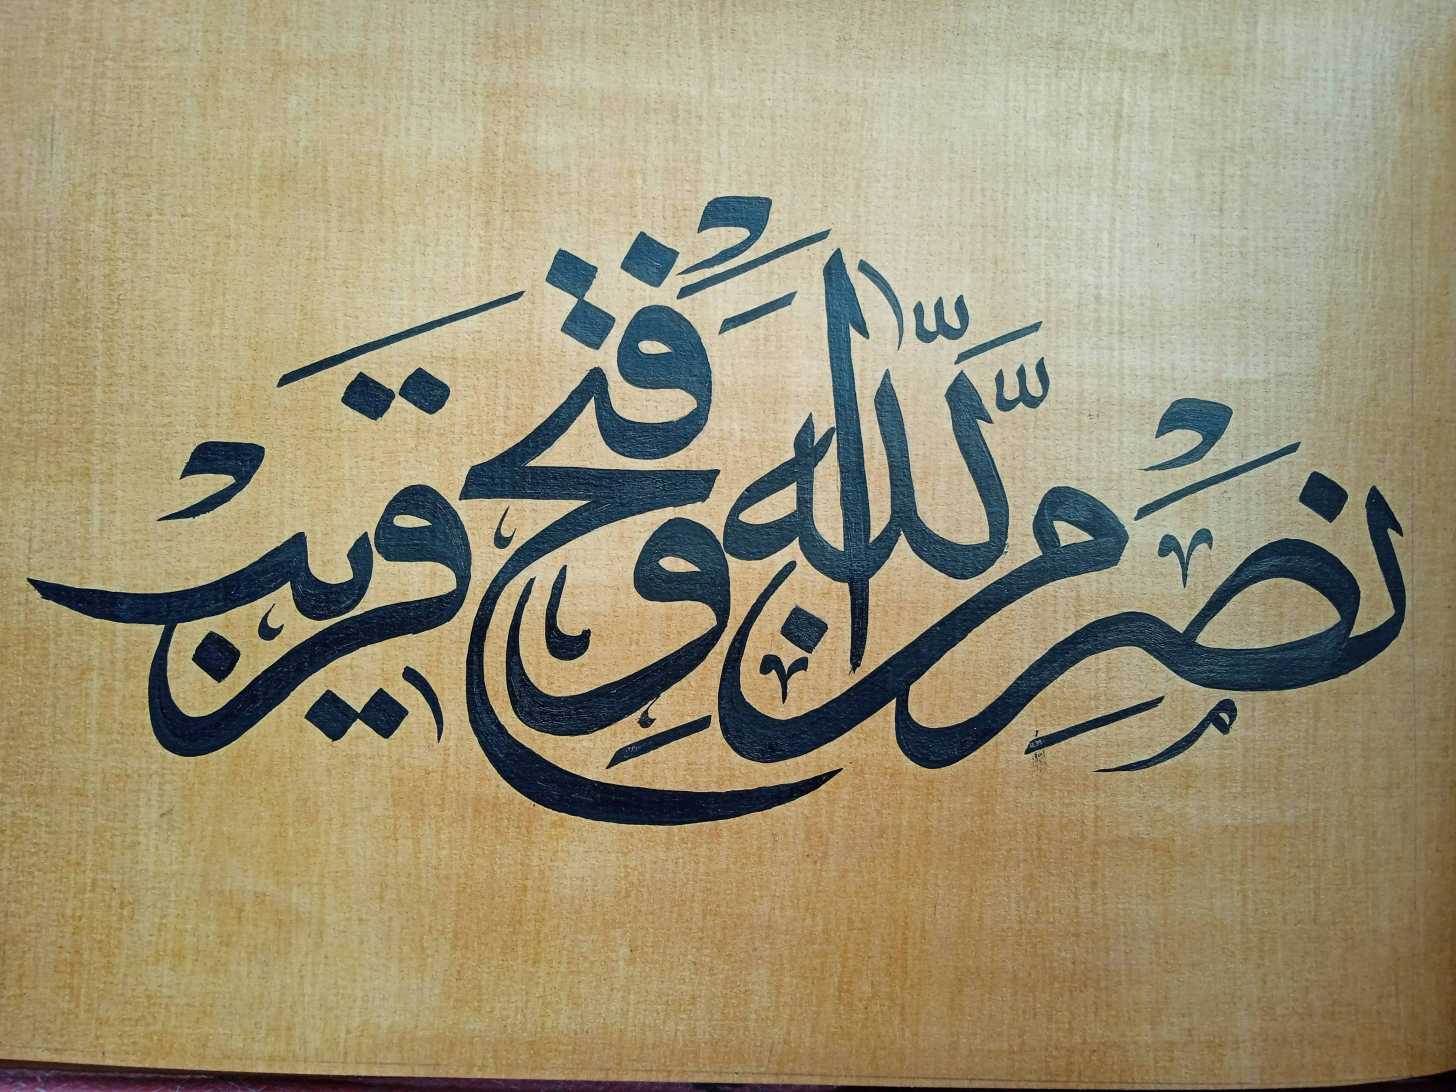 نَصْرٌ مِنَ اللّٰهِ وَفَتْحٌ قَرِيبٌ